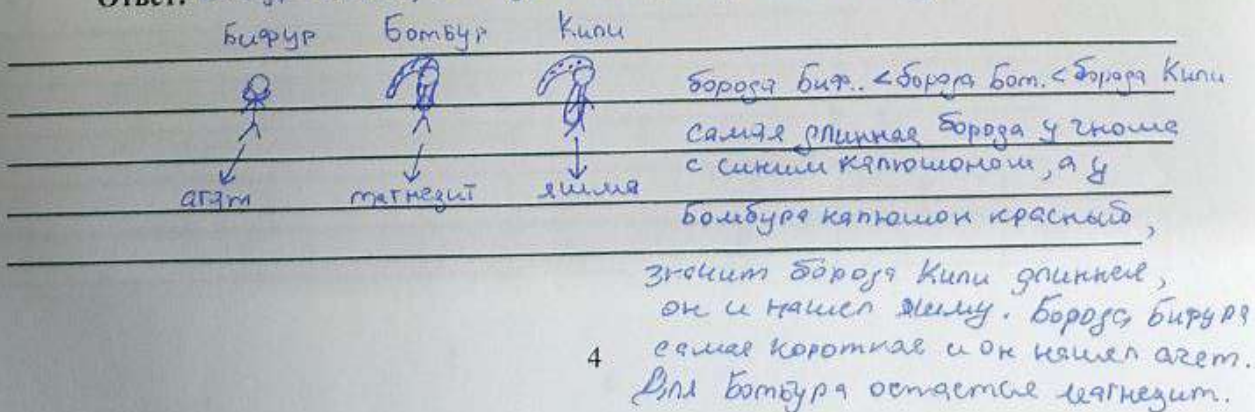 Ответ:
Бифур Бомбур Кили
борода Биф.. < борода Бом. < борода Кили
самая длинная борода у гнома
с синим капюшоном, а у
агат магнезит яшма
Бомбура капюшон красный,
значит борода Кили длиннее,
он и нашел яшму. Борода Бифура
4 самая короткая и он нашел агат.
Для Бомбура остается магнезит.